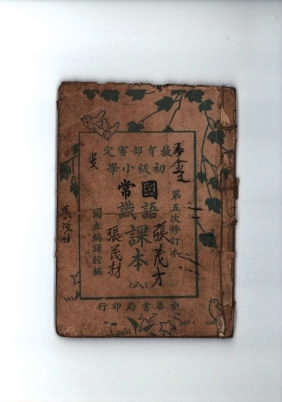 教育部審定
初級小學
國語
常識
課本
(八)
第五次修訂本
國立編譯館編
中華書局印行
張茂才
張茂材